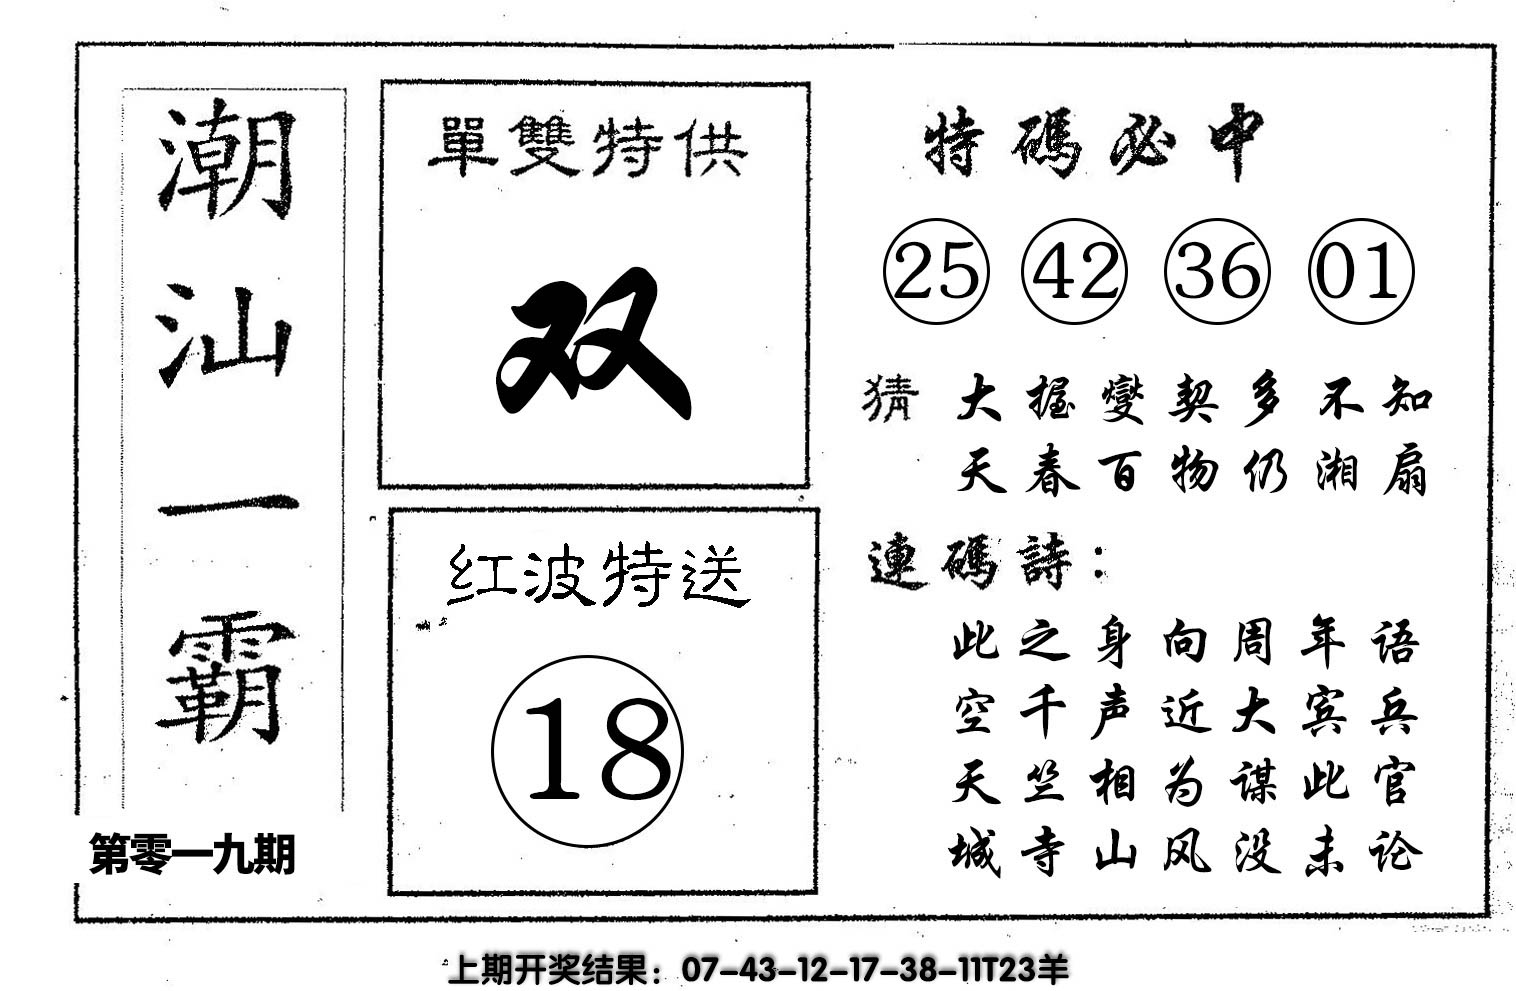 潮汕一霸
第零一九期
單雙特供
双
红波特送
18
特碼必中
25 42 36 01
猜 大握燮契多不知
天春百物仍湘扇
連碼詩：
此之身向周年语
空千声近大宾兵
天竺相为谋此官
城寺山风没未论
上期开奖结果：07-43-12-17-38-11T23羊